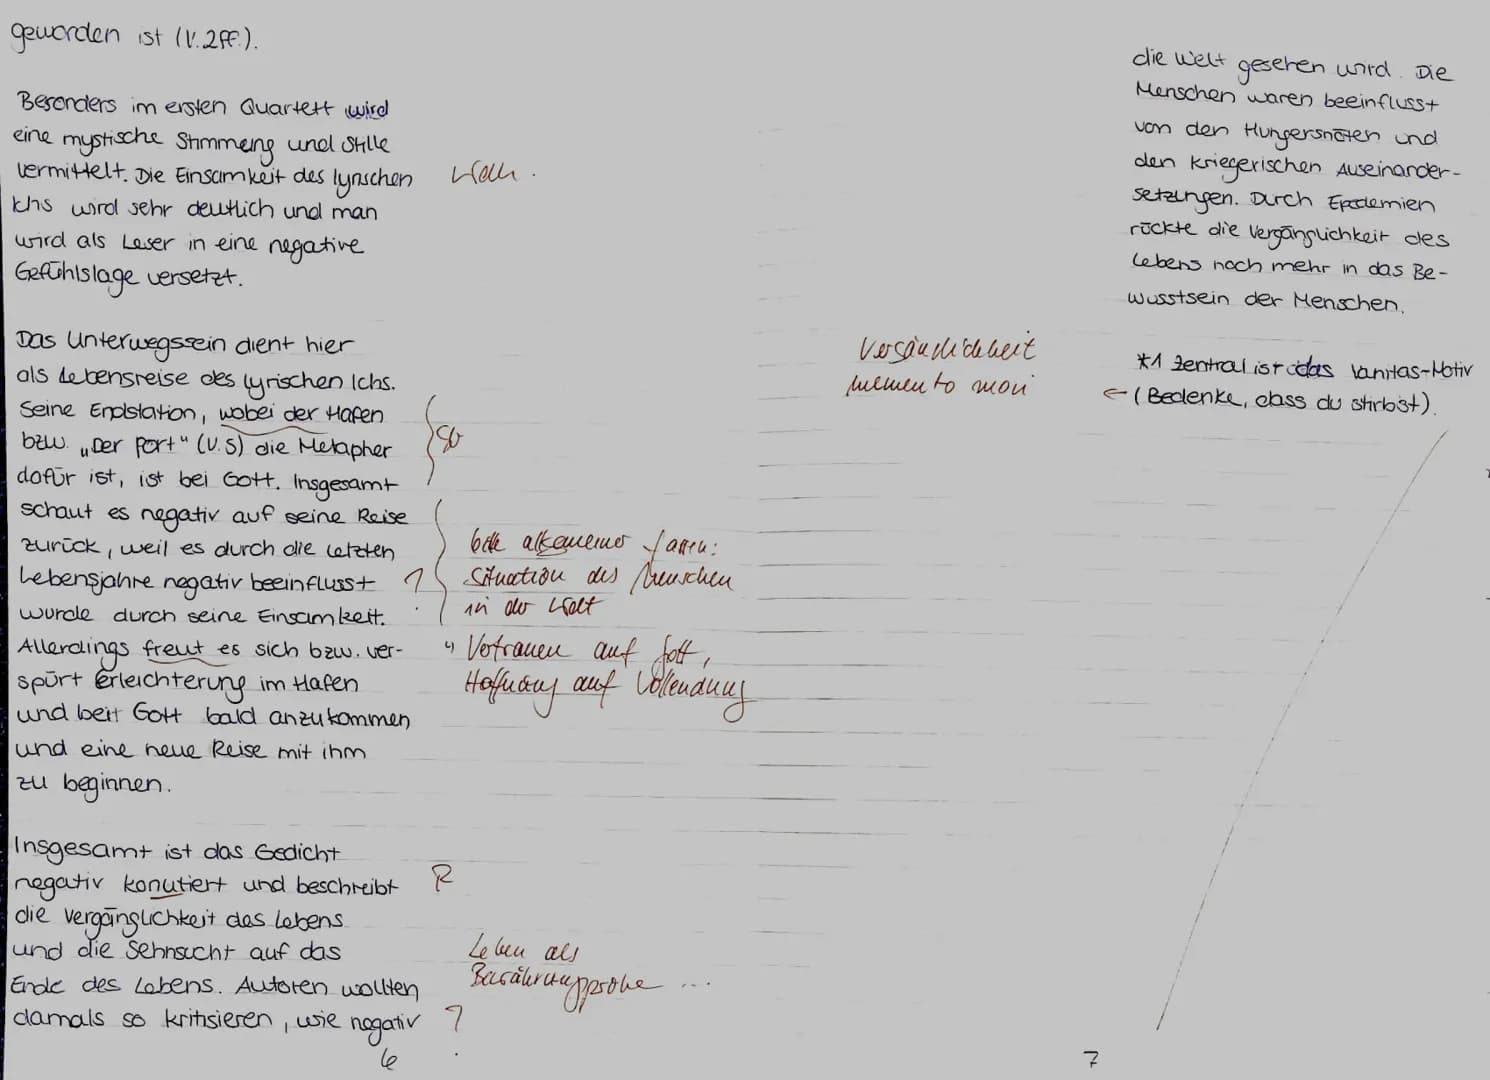 geworden ist (V. 2ff.).
Besonders im ersten Quartett wird
eine mystische Stimmung und Stille
vermittelt. Die Einsamkeit des lyrischen
Ichs wird sehr deutlich und man
wird als Leser in eine negative
Gefühlslage versetzt.
Das Unterwegssein dient hier
als Lebensreise des lyrischen Ichs.
Seine Endstation, wobei der Hafen
bzw. „Der Port" (V.5) die Metapher
dafür ist, ist bei Gott. Insgesamt
schaut es negativ auf seine Reise
zurück, weil es durch die letzten
Lebensjahre negativ beeinflusst
wurde durch seine Einsamkeit.
Allerdings freut es sich bzw. ver-
spürt Erleichterung im Hafen
und beit Gott bald anzukommen
und eine neue Reise mit ihm
zu beginnen.
Insgesamt ist das Gedicht
negativ konutiert und beschreibt
die Vergänglichkeit des Lebens
und die Sehnsucht auf das
Ende des Lebens. Autoren wollten
damals so kritisieren, wie negativ
6
Wdh.
Sb
?
bitte allgemeiner fassen:
Situation des Menschen
in der Welt
↳ Vertrauen auf Gott,
Hoffnung auf Vollendung
R
Leben als
Bewährungsprobe ...
?
die Welt gesehen wird. Die
Menschen waren beeinflusst
von den Hungersnöten und
den kriegerischen Auseinander-
setzungen. Durch Epidemien
rückte die Vergänglichkeit des
Lebens noch mehr in das Be-
wusstsein der Menschen.
Vergänglichkeit
memento mori
*1 Zentral ist das Vanitas-Motiv
← (Bedenke, dass du stirbst).
7